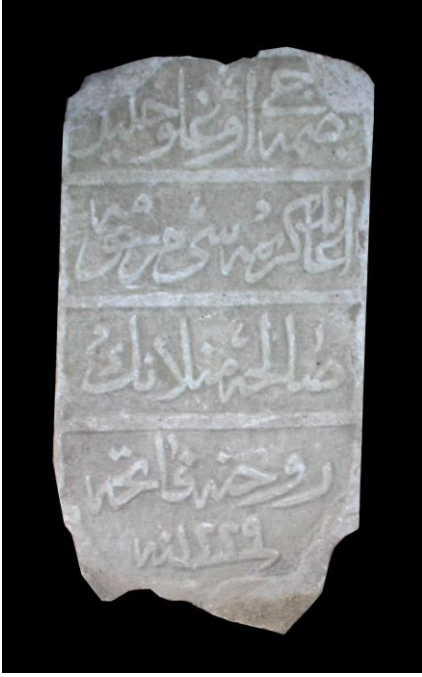 بصمه جی اوغلو خلیل
اغانك كريمه سی مرحومه
صالحه منلانك
روحنه فاتحه
سنه ١٢٢٩